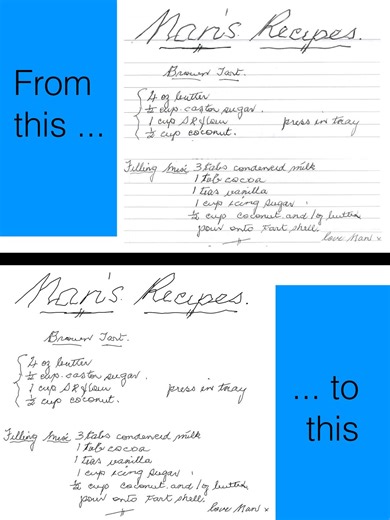 From
this ...
Nan's Recipes.
Brown Tart.
4 oz butter
½ cup castor sugar.
1 cup SR flour press in tray
½ cup coconut.
Filling Mix 3 tabs condenced milk
1 tab cocoa
1 teas vanilla
1 cup icing sugar.
½ cup coconut and 1 oz butter
pour onto tart shell.
love Nan x
Nan's Recipes.
Brown Tart.
4 oz butter
½ cup castor sugar.
1 cup SR flour press in tray
½ cup coconut.
Filling Mix 3 tabs condenced milk
1 tab cocoa
1 teas vanilla
1 cup icing sugar.
½ cup coconut and 1 oz butter
pour onto tart shell.
love Nan x
... to
this